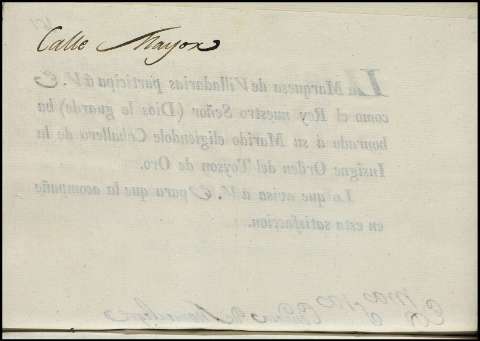 Calle Mayor
La Marquesa de Villadarias participa á V. E.
como el Rey nuestro Señor (Dios le guarde) ha
honrado á su Marido eligiendole Caballero de la
Insigne Orden del Toyson de Oro.
Lo que avisa á V. E. para que la acompañe
en esta satisfaccion.